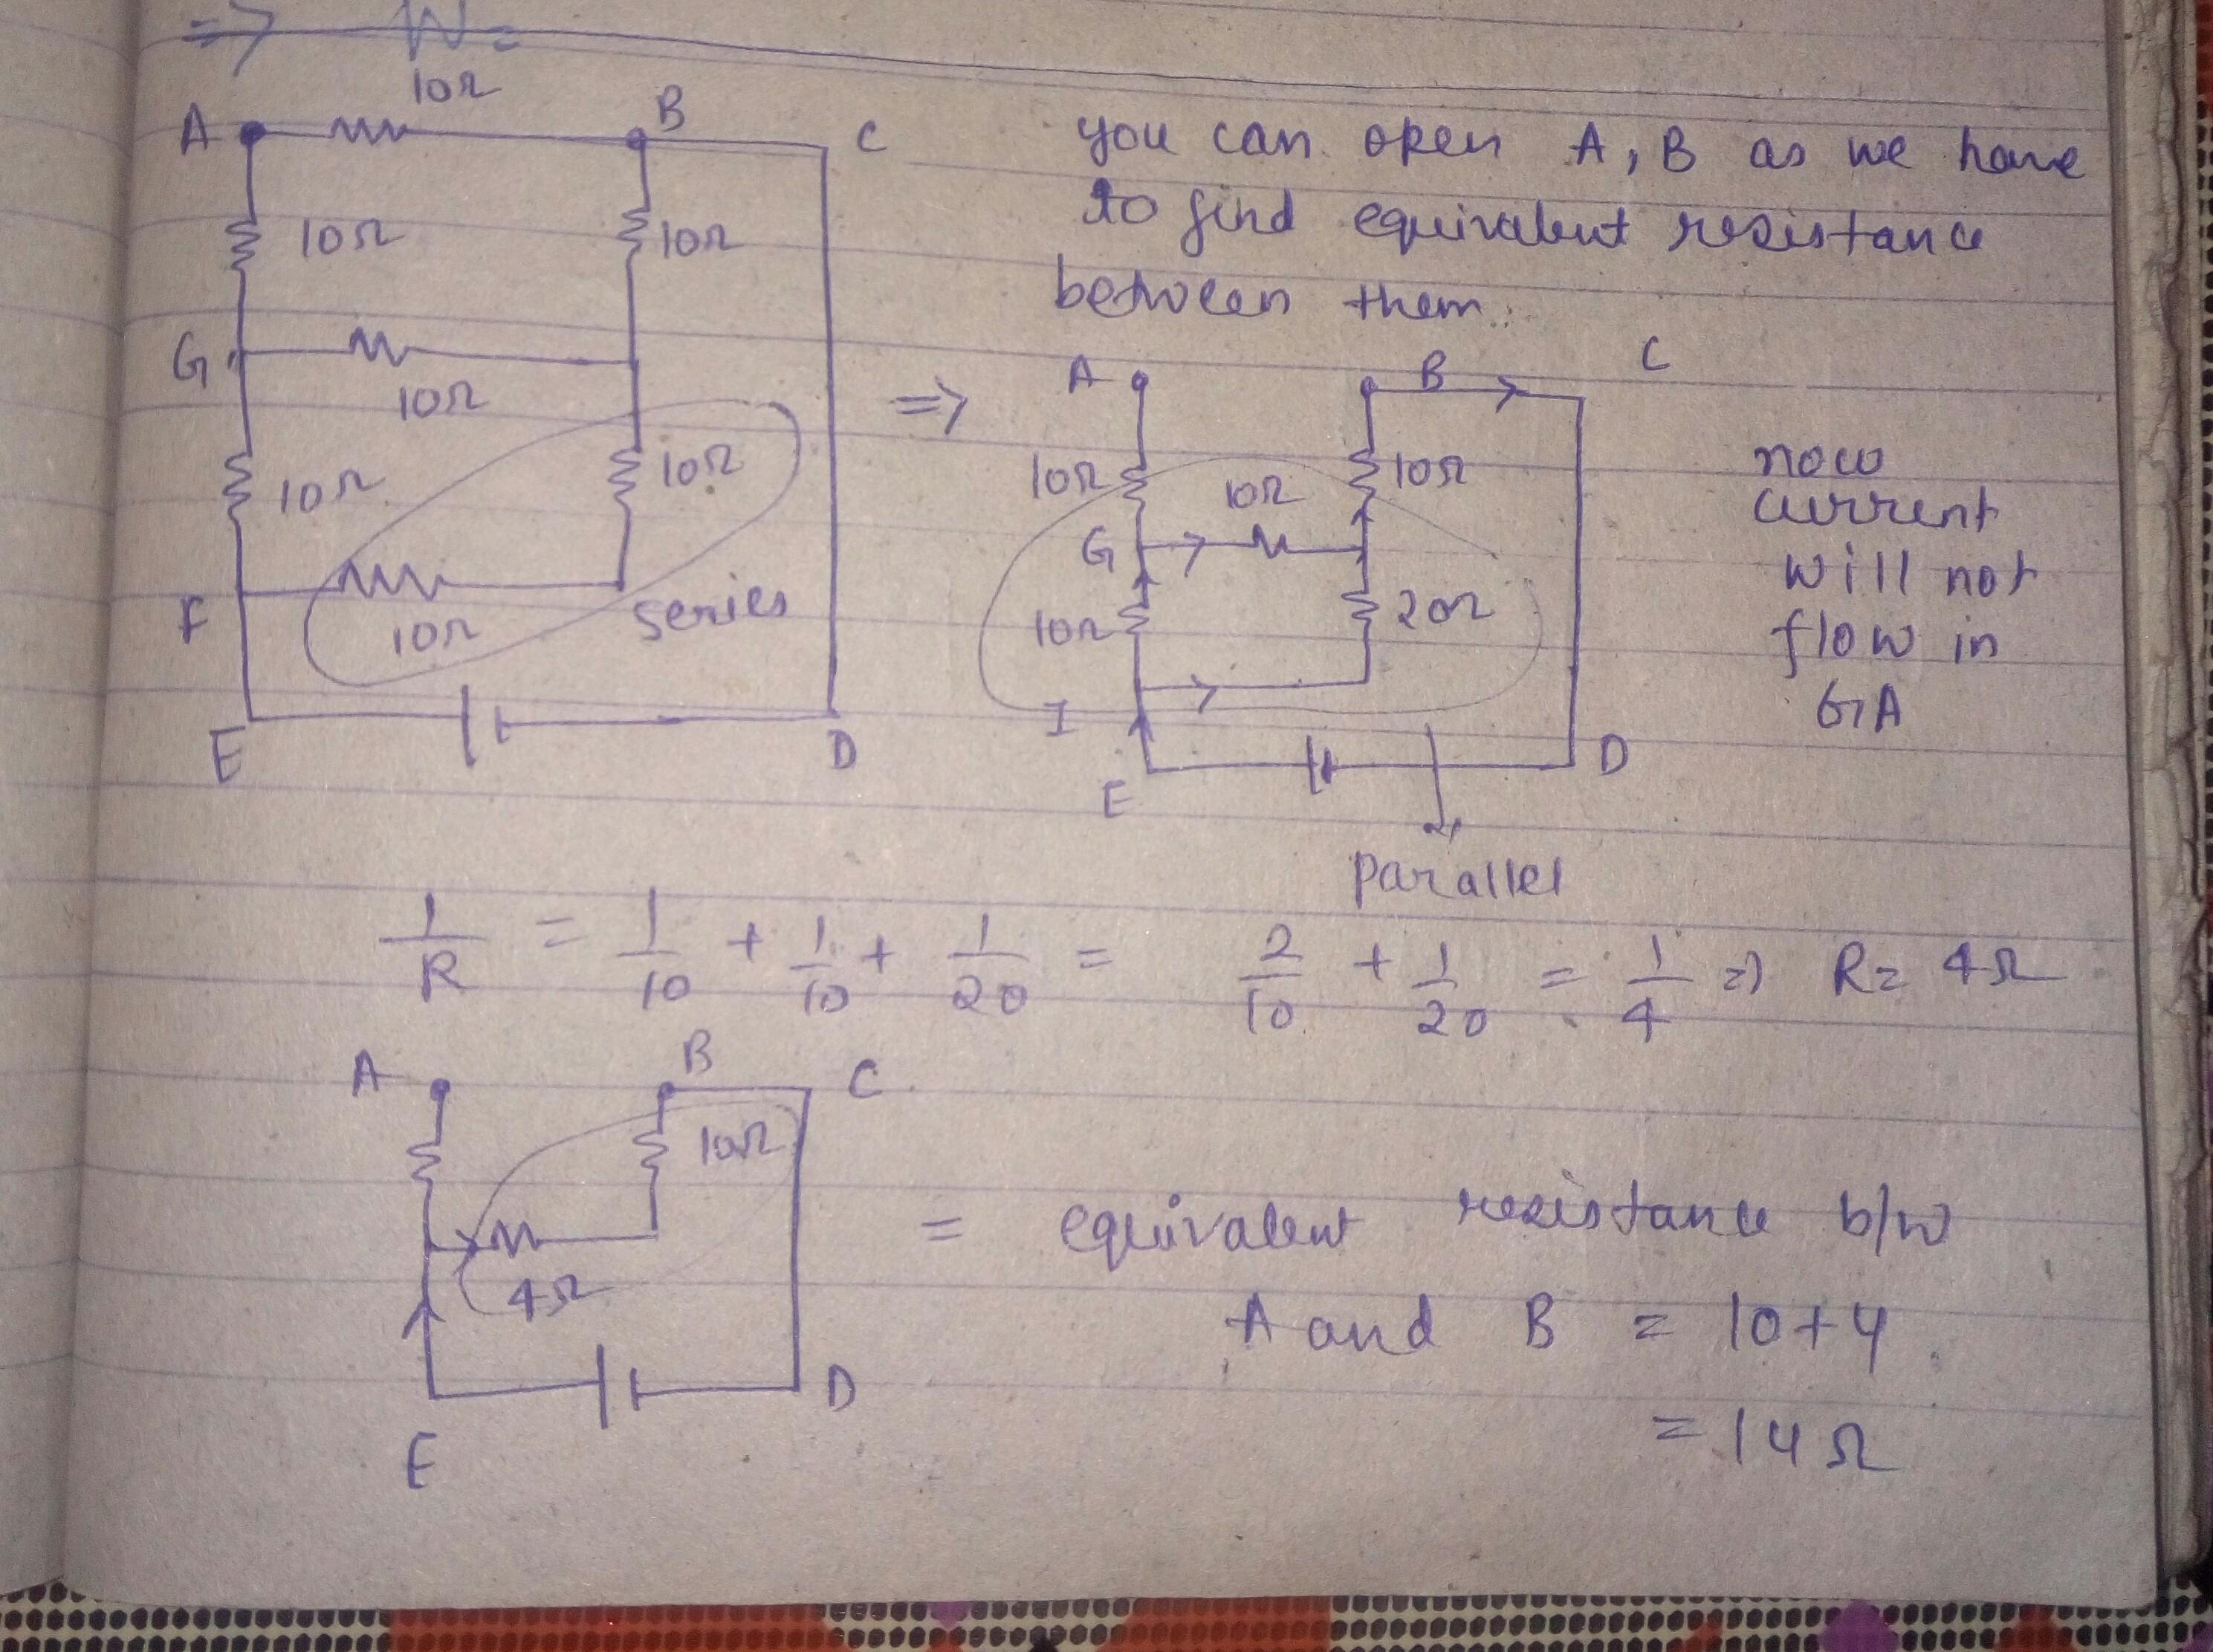 => W =
10Ω
A B C
10Ω 10Ω
G
10Ω
10Ω 10Ω
F
10Ω series
E D
you can open A, B as we have
to find equivalent resistance
between them.
=>
A B C
10Ω 10Ω 10Ω
G
10Ω 20Ω
I
E D
now
current
will not
flow in
GA
Parallel
1/R = 1/10 + 1/10 + 1/20 = 2/10 + 1/20 = 1/4 => R = 4Ω
A B C
10Ω
4Ω
E D
= equivalent resistance b/w
A and B = 10+4
= 14Ω